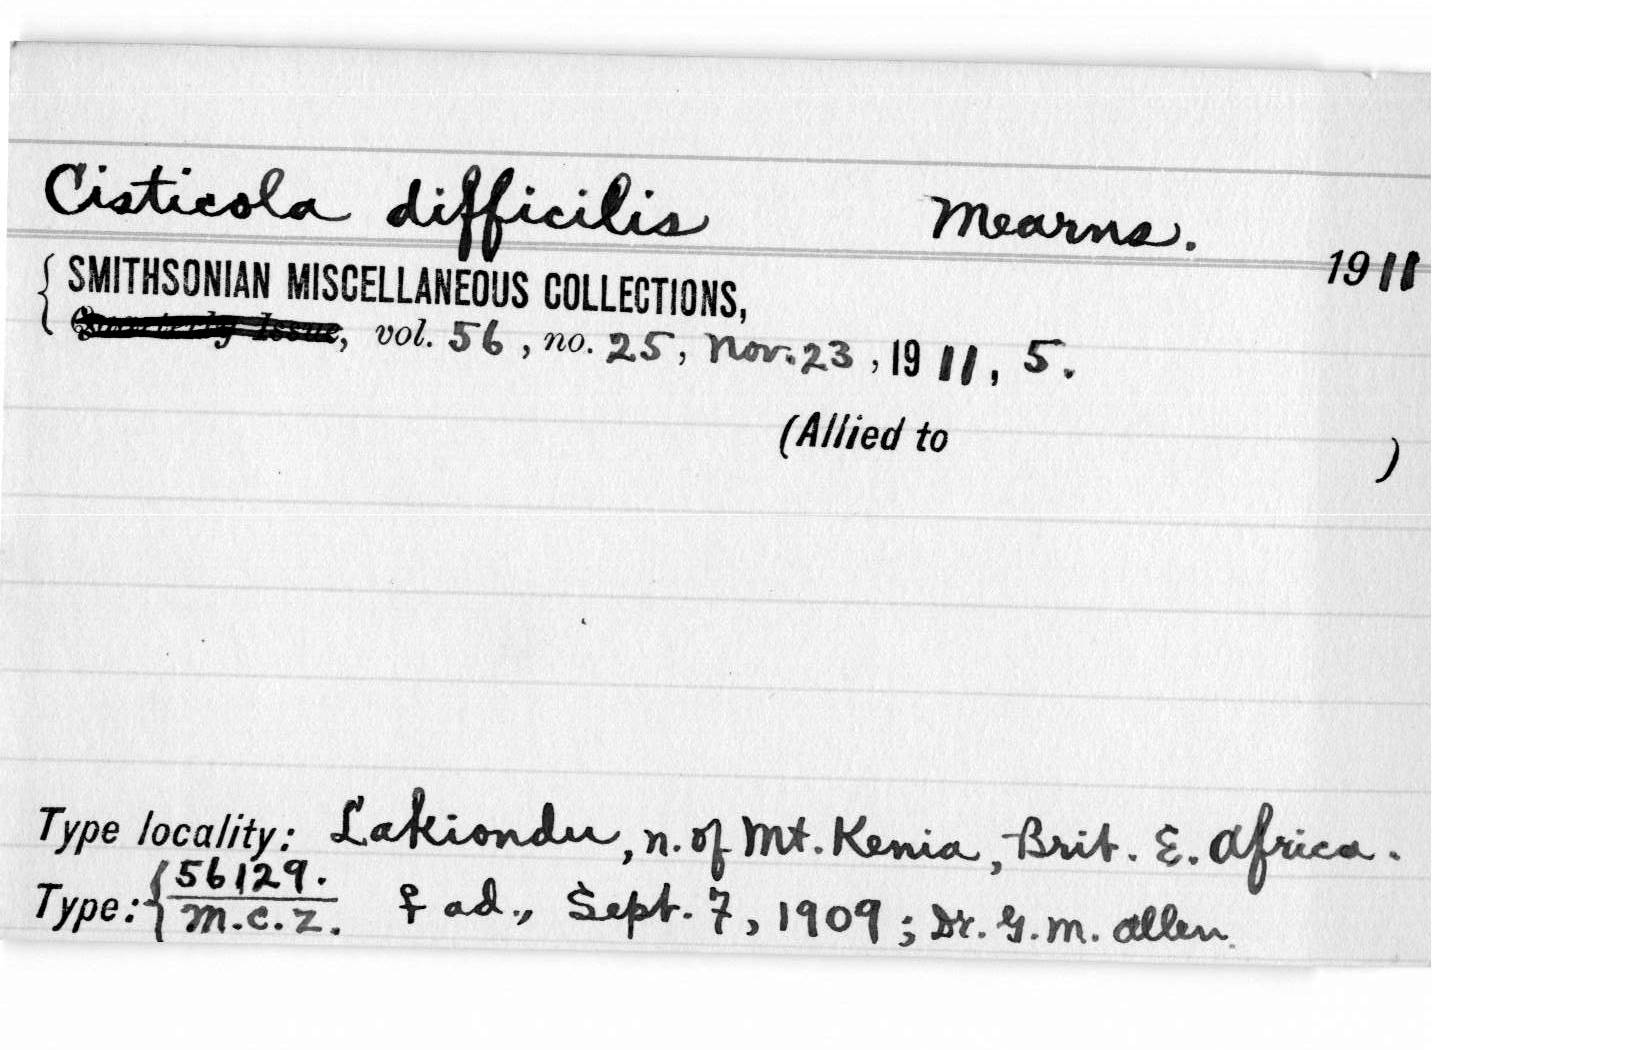 Cisticola difficilis Mearns. 1911
SMITHSONIAN MISCELLANEOUS COLLECTIONS,
Quarterly Issue, vol. 56, no. 25, Nov. 23, 1911, 5.
(Allied to )
Type locality: Lakiondu, n. of Mt. Kenia, Brit. E. Africa.
Type: { 56129.
M.C.Z. ♀ ad., Sept. 7, 1909; Dr. G. M. Allen.